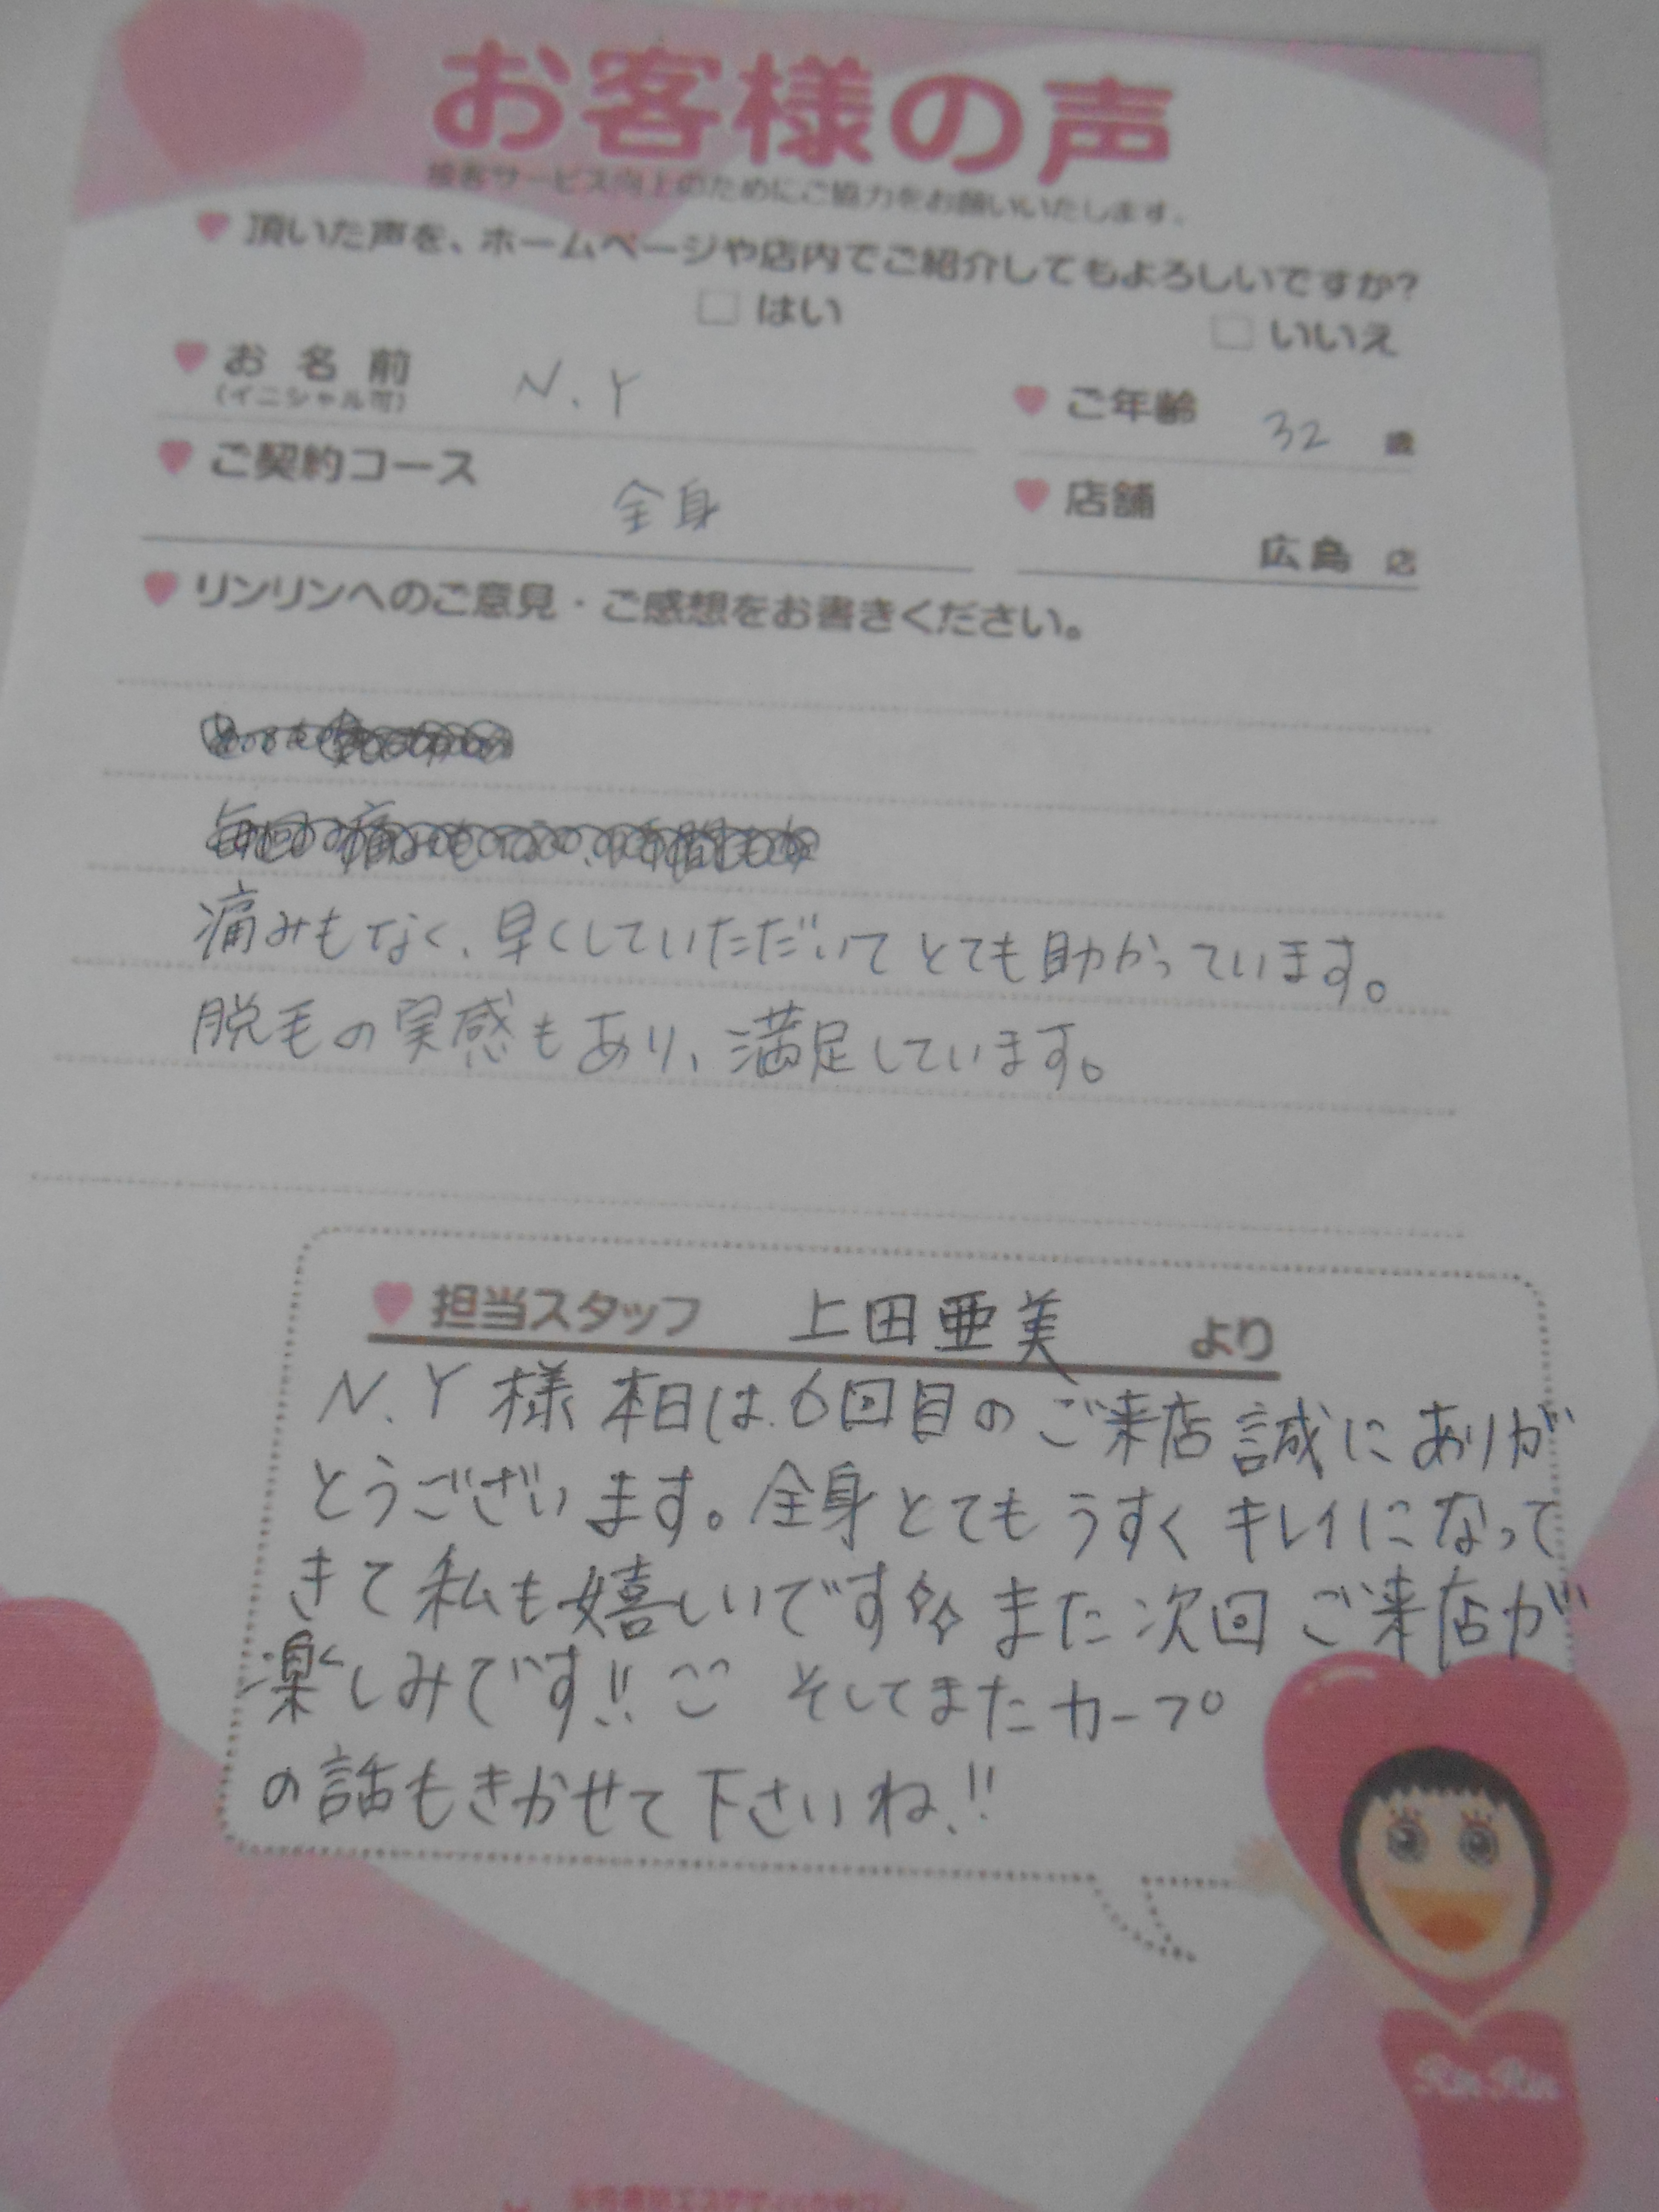 お客様の声
接客サービス向上のためにご協力をお願いいたします。
頂いた声を、ホームページや店内でご紹介してもよろしいですか?
はい いいえ
お名前 N.Y ご年齢 32 歳
(イニシャル可)
ご契約コース 全身 店舗 広島 店
リンリンへのご意見・ご感想をお書きください。
痛みもなく、早くしていただいてとても助かっています。
脱毛の実感もあり、満足しています。
担当スタッフ 上田亜美 より
N.Y様 本日は、6回目のご来店誠にありが
とうございます。全身とてもうすくキレイになって
きて私も嬉しいです また次回ご来店が
楽しみです!! そしてまたカープ
の話もきかせて下さいね!!
Rin Rin